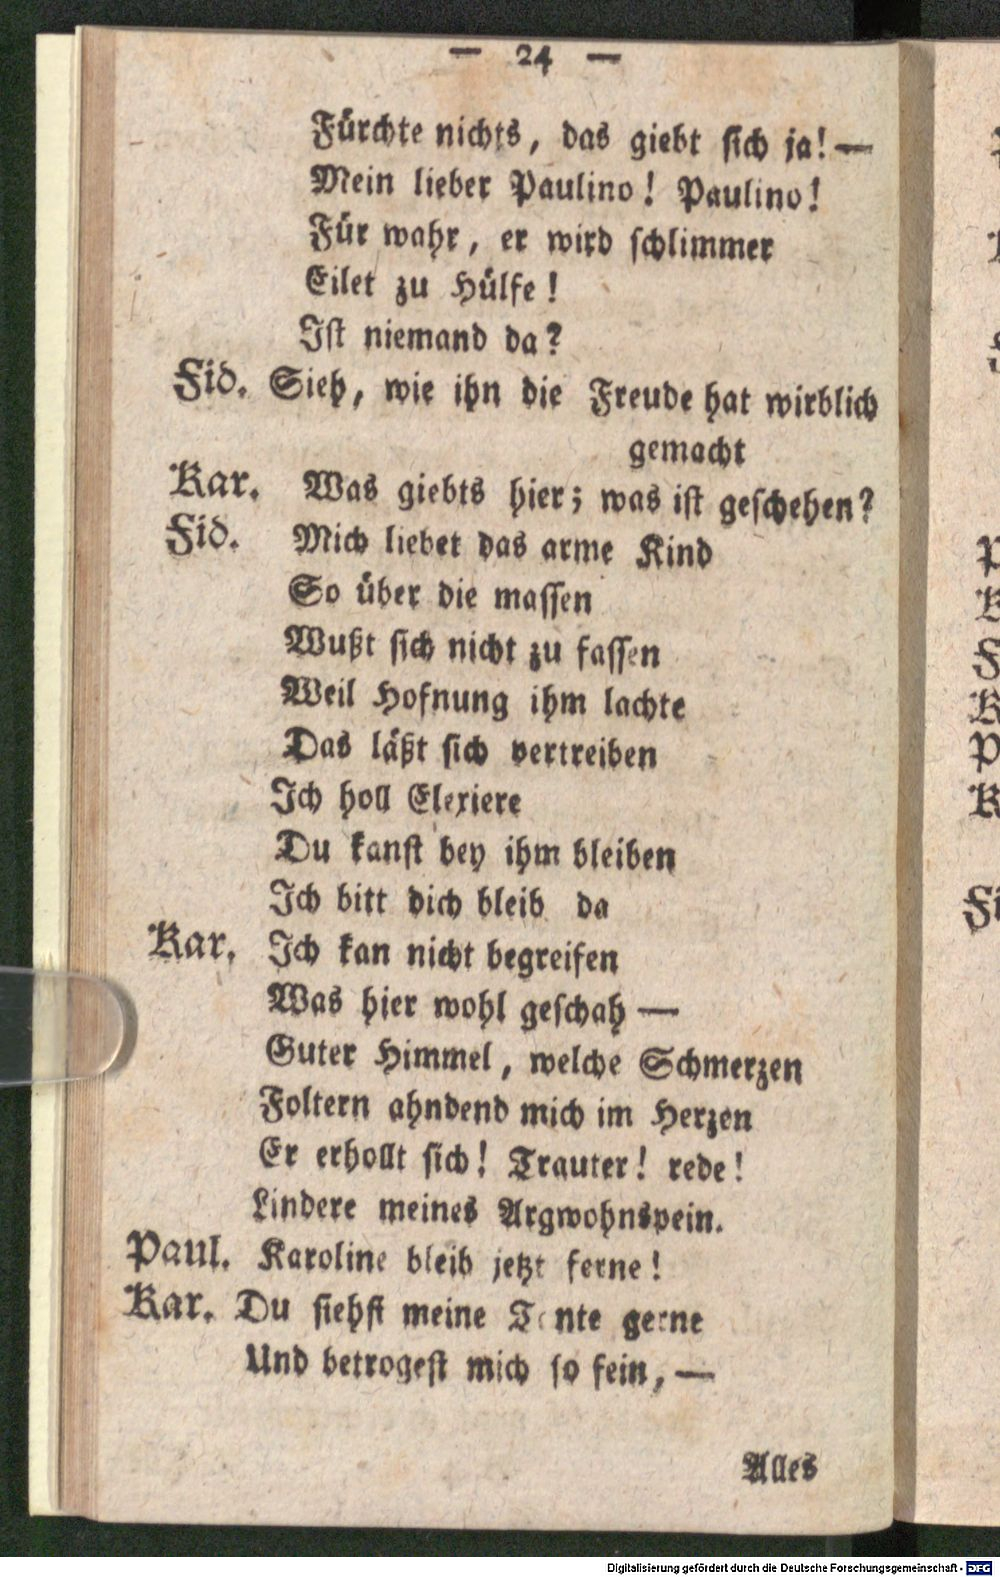 — 24 —
Fürchte nichts, das giebt sich ja! —
Mein lieber Paulino! Paulino!
Für wahr, er wird schlimmer
Eilet zu Hülfe!
Ist niemand da?
Fid. Sieh, wie ihn die Freude hat wirblich
gemacht
Kar. Was giebts hier; was ist geschehen?
Fid. Mich liebet das arme Kind
So über die massen
Wußt sich nicht zu fassen
Weil Hofnung ihm lachte
Das läßt sich vertreiben
Ich holl Elexiere
Du kanst bey ihm bleiben
Ich bitt dich bleib da
Kar. Ich kan nicht begreifen
Was hier wohl geschah —
Guter Himmel, welche Schmerzen
Foltern ahndend mich im Herzen
Er erhollt sich! Trauter! rede!
Lindere meines Argwohnspein.
Paul. Karoline bleib jetzt ferne!
Kar. Du siehst meine Tante gerne
Und betrogest mich so fein, —
Alles
Digitalisierung gefördert durch die Deutsche Forschungsgemeinschaft - DFG